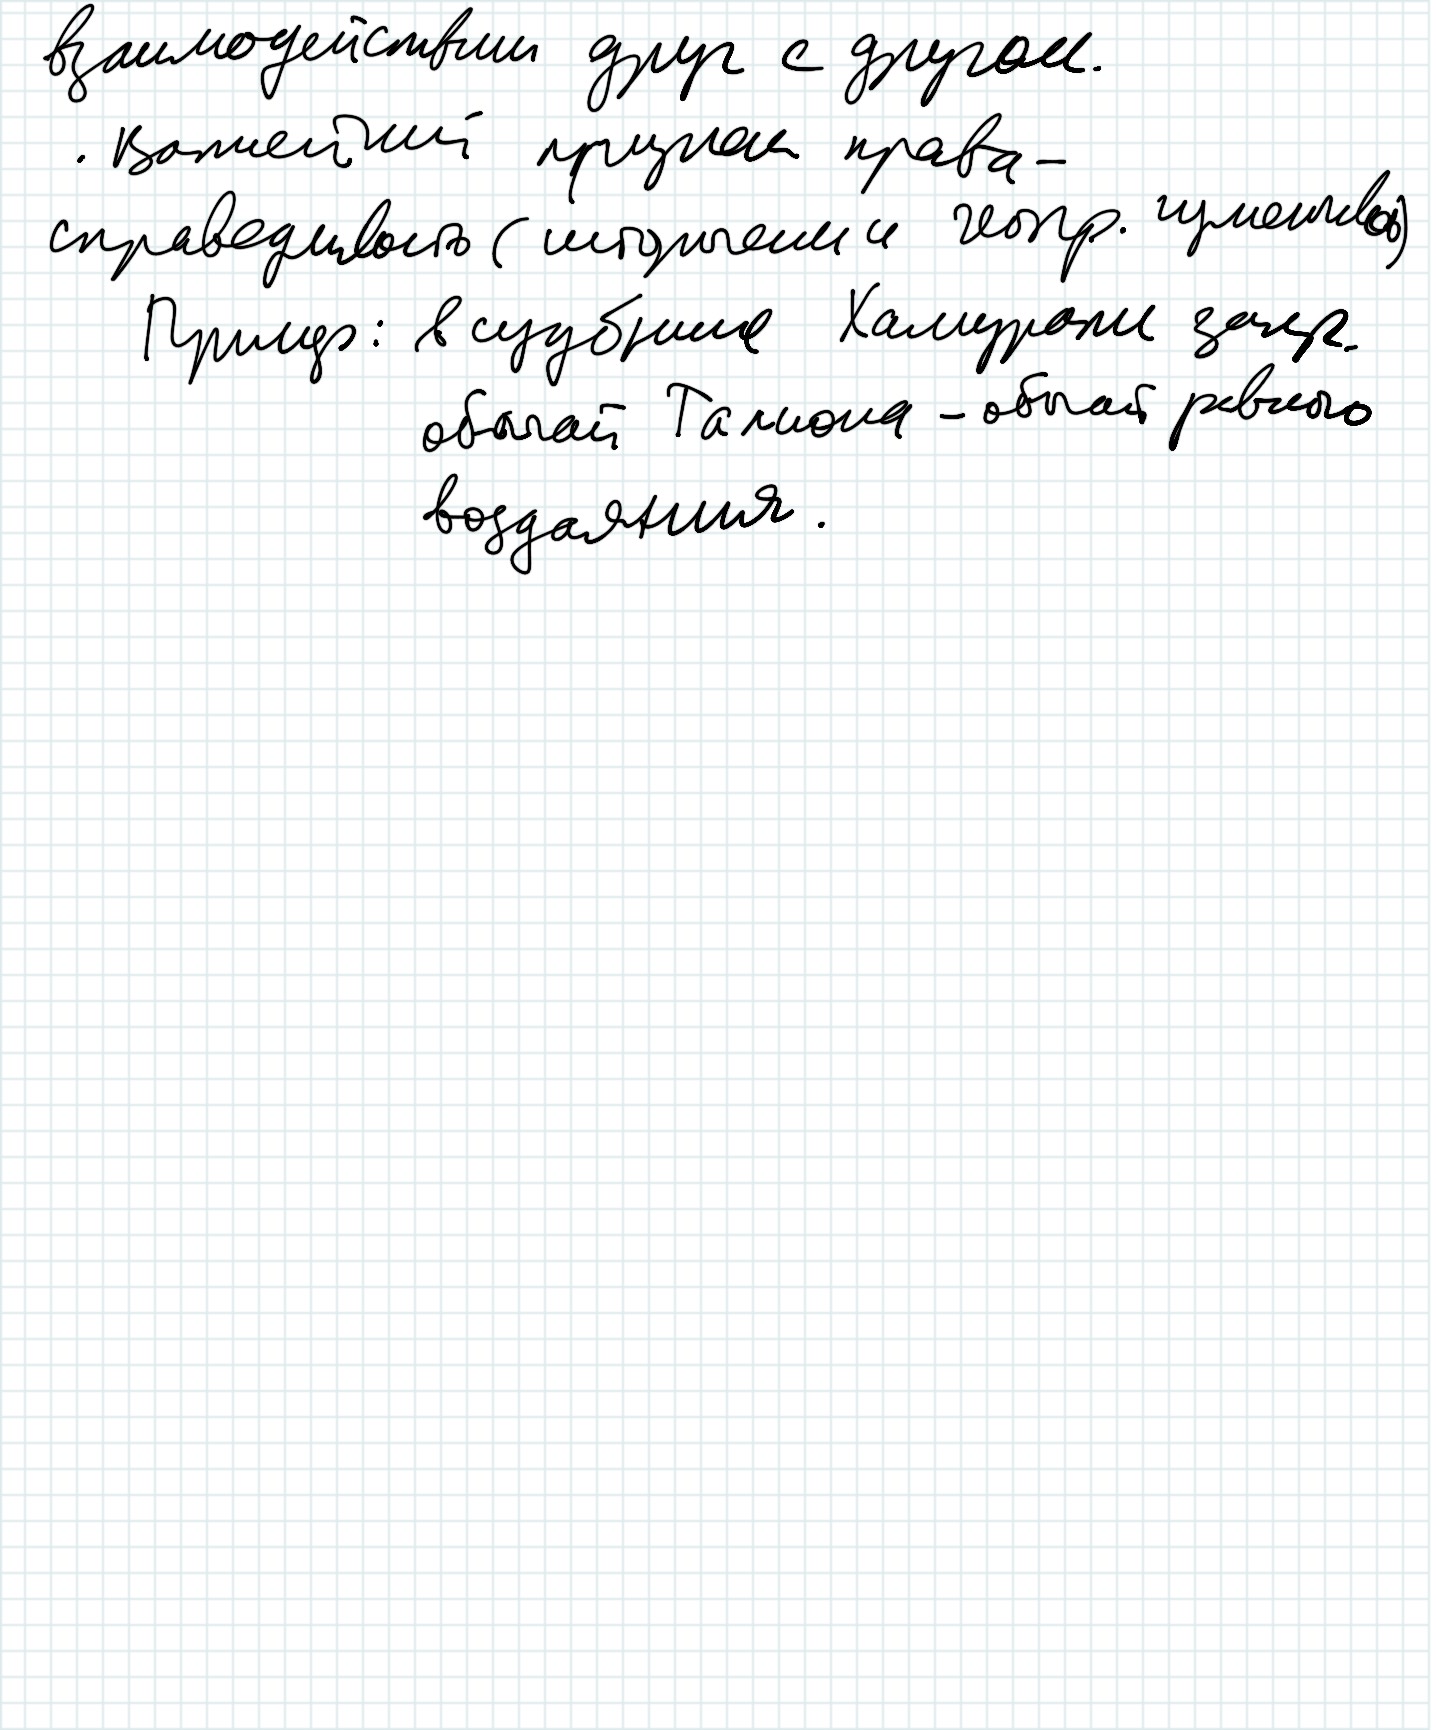 взаимодействии друг с другом.
· Важнейший признак права –
справедливость (исторически и геогр. изменчивы)
Пример: в судебнике Хамурапи закр.
обычай Талиона – обычай равного
воздаяния.